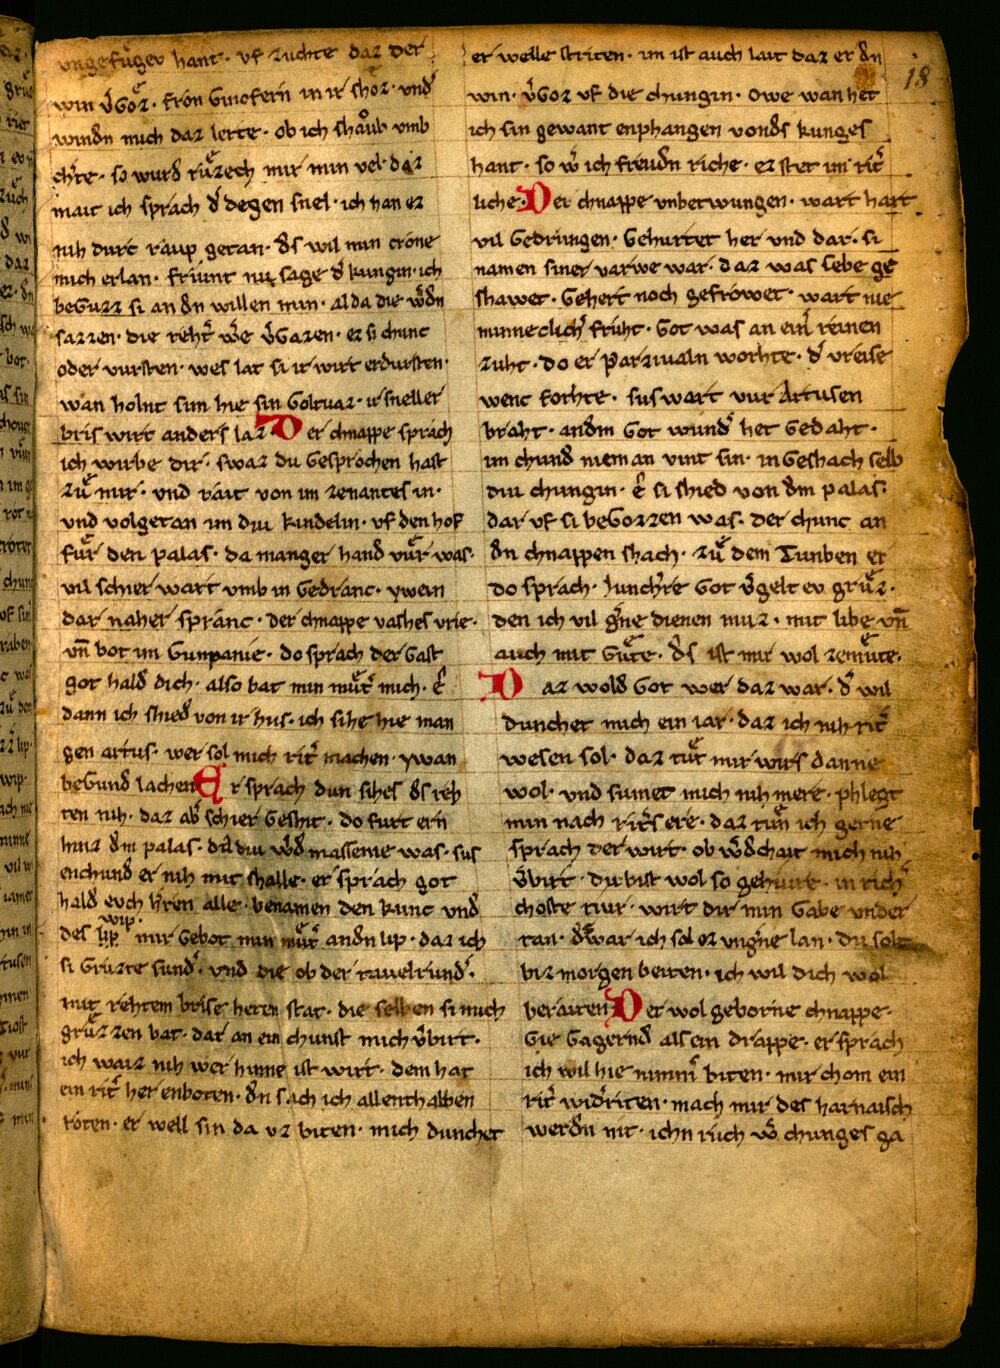 ungefuͤgev hant · vf zuchte daz der
win v̓goz · fron Ginofern in ir shoz · vnd̓
windn mich daz lerte · ob ich shaͦub vmb
cherte · so wurd̓ ruͤzech mir min vel · daz
mait ich sprach d̓ degen snel · ich han ez
nih durt raup getan · d̓s wil min crone
mich erlan · friunt nu sage d̓ kungin · ich
beguzz si an d̓n willen min · al da die w̓dn
sazzen · die reht̓ w̓e v̓gazen · ez si chunc
oder vursten · wes lat si ir wirt erdursten ·
wan holnt sim hie sin Goltvaz · ir sneller
bris wirt anders laz Der chnappe sprach
ich wirbe dir · swaz du Gesprochen hast
zuͤ mir · vnd rait von im ze nantes in ·
vnd volgetan im diu kindelin · vf den hof
fuͤr den palas · da manger hand̓ vuͤr was ·
vil schier wart vmb in Gedranc · ywein
dar naher spranc · der chnappe valshes vrie ·
vn̄ bot im Gunpanie · do sprach der Gast
got hald̓ dich · also bat min muͤt̓ mich · e͛
dann ich shied̓ von ir hus · ich sihe hie man
gen artus · wer sol mich rit̓ machen · ywan
begund̓ lachen Er sprach dun sihes d̓s reh
ten nih · daz ab̓ schier Geshit · do furt ern
hinz d̓m palas · da diu w̓d̓ massenie was · sus
enchund̓ er nih mit shalle · er sprach got
hald̓ evch h̓ren alle · benamen den kunc vnd
wip ·
des lip mir Gebot min muͤt̓ and̓n lip · daz ich
si Gruzte sund̓ · vnd die ob der tavelrund̓ ·
mit rehtem brise heten stat · die selben si mich
gruͤzzen bat · dar an ein chunst mich v̓birt ·
ich waiz nih wer hinne ist wirt · dem hat
ein rit̓ her enboten · d̓n sach ich allenthalben
roten · er well sin da vz biten · mich dunchet
er welle striten · im ist auch lait daz er d̓n
18
win · v̓goz vf die chungin · owe wan het
ich sin gewant enphangen vond̓s kunges
hant · so w̓ ich freud̓n riche · ez stet im rit̓
liche · Der chnappe vnbetwungen · wart hart
vil Gedrungen · Gehurtet her vnd dar · si
namen siner varwe war · daz was selbe ge
shawet · Gehert noch gefrowet · wart nie
minneclich̓ fruht · Got was an ein̓ reinen
zuht · do er Parzivaln worhte · d̓ vreise
wenc forhte · sus wart vur Artusen
braht · and̓m Got wund̓ het Gedaht ·
im chund̓ nieman vint sin · in Geshach selb
diu chungin · e͛ si shied von d̓m palas ·
dar vf si begozzen was · der chunc an
d̓n chnappen shach · zuͤ dem Tunben er
do sprach · Iunch̓re Got v̓gelt ev gruͤz ·
den ich vil g̓ne dienen muz · mit libe vn̄
auch mit Guͤte · d̓s ist mir wol zemuͤte ·
Daz wold̓ Got wer daz war · d̓ wil
dunchet mich ein iar · daz ich nih rit̓
wesen sol · daz tuͤt mir wirs danne
wol · vnd sumet mich nih mere · phlegt
min nach rit̓s ere · daz tuͤn ich gerne
sprach der wirt · ob w̓d̓chait mich nih
v̓birt · du bist wol so gehiure · in rich̓
choste tiur · wirt dir min Gabe vnder
tan · d̓swar ich sol ez vng̓ne lan · du solt
biz morgen beiten · ich wil dich wol
beraiten Der wol geborne chnappe ·
Gie Gagernd̓ als ein drappe · er sprach
ich wil hie nimm̓ biten · mir chom ein
rit̓ wid̓riten · mach mir des harnaisch
werd̓n nit · ichn ruch w̓ chunges ga